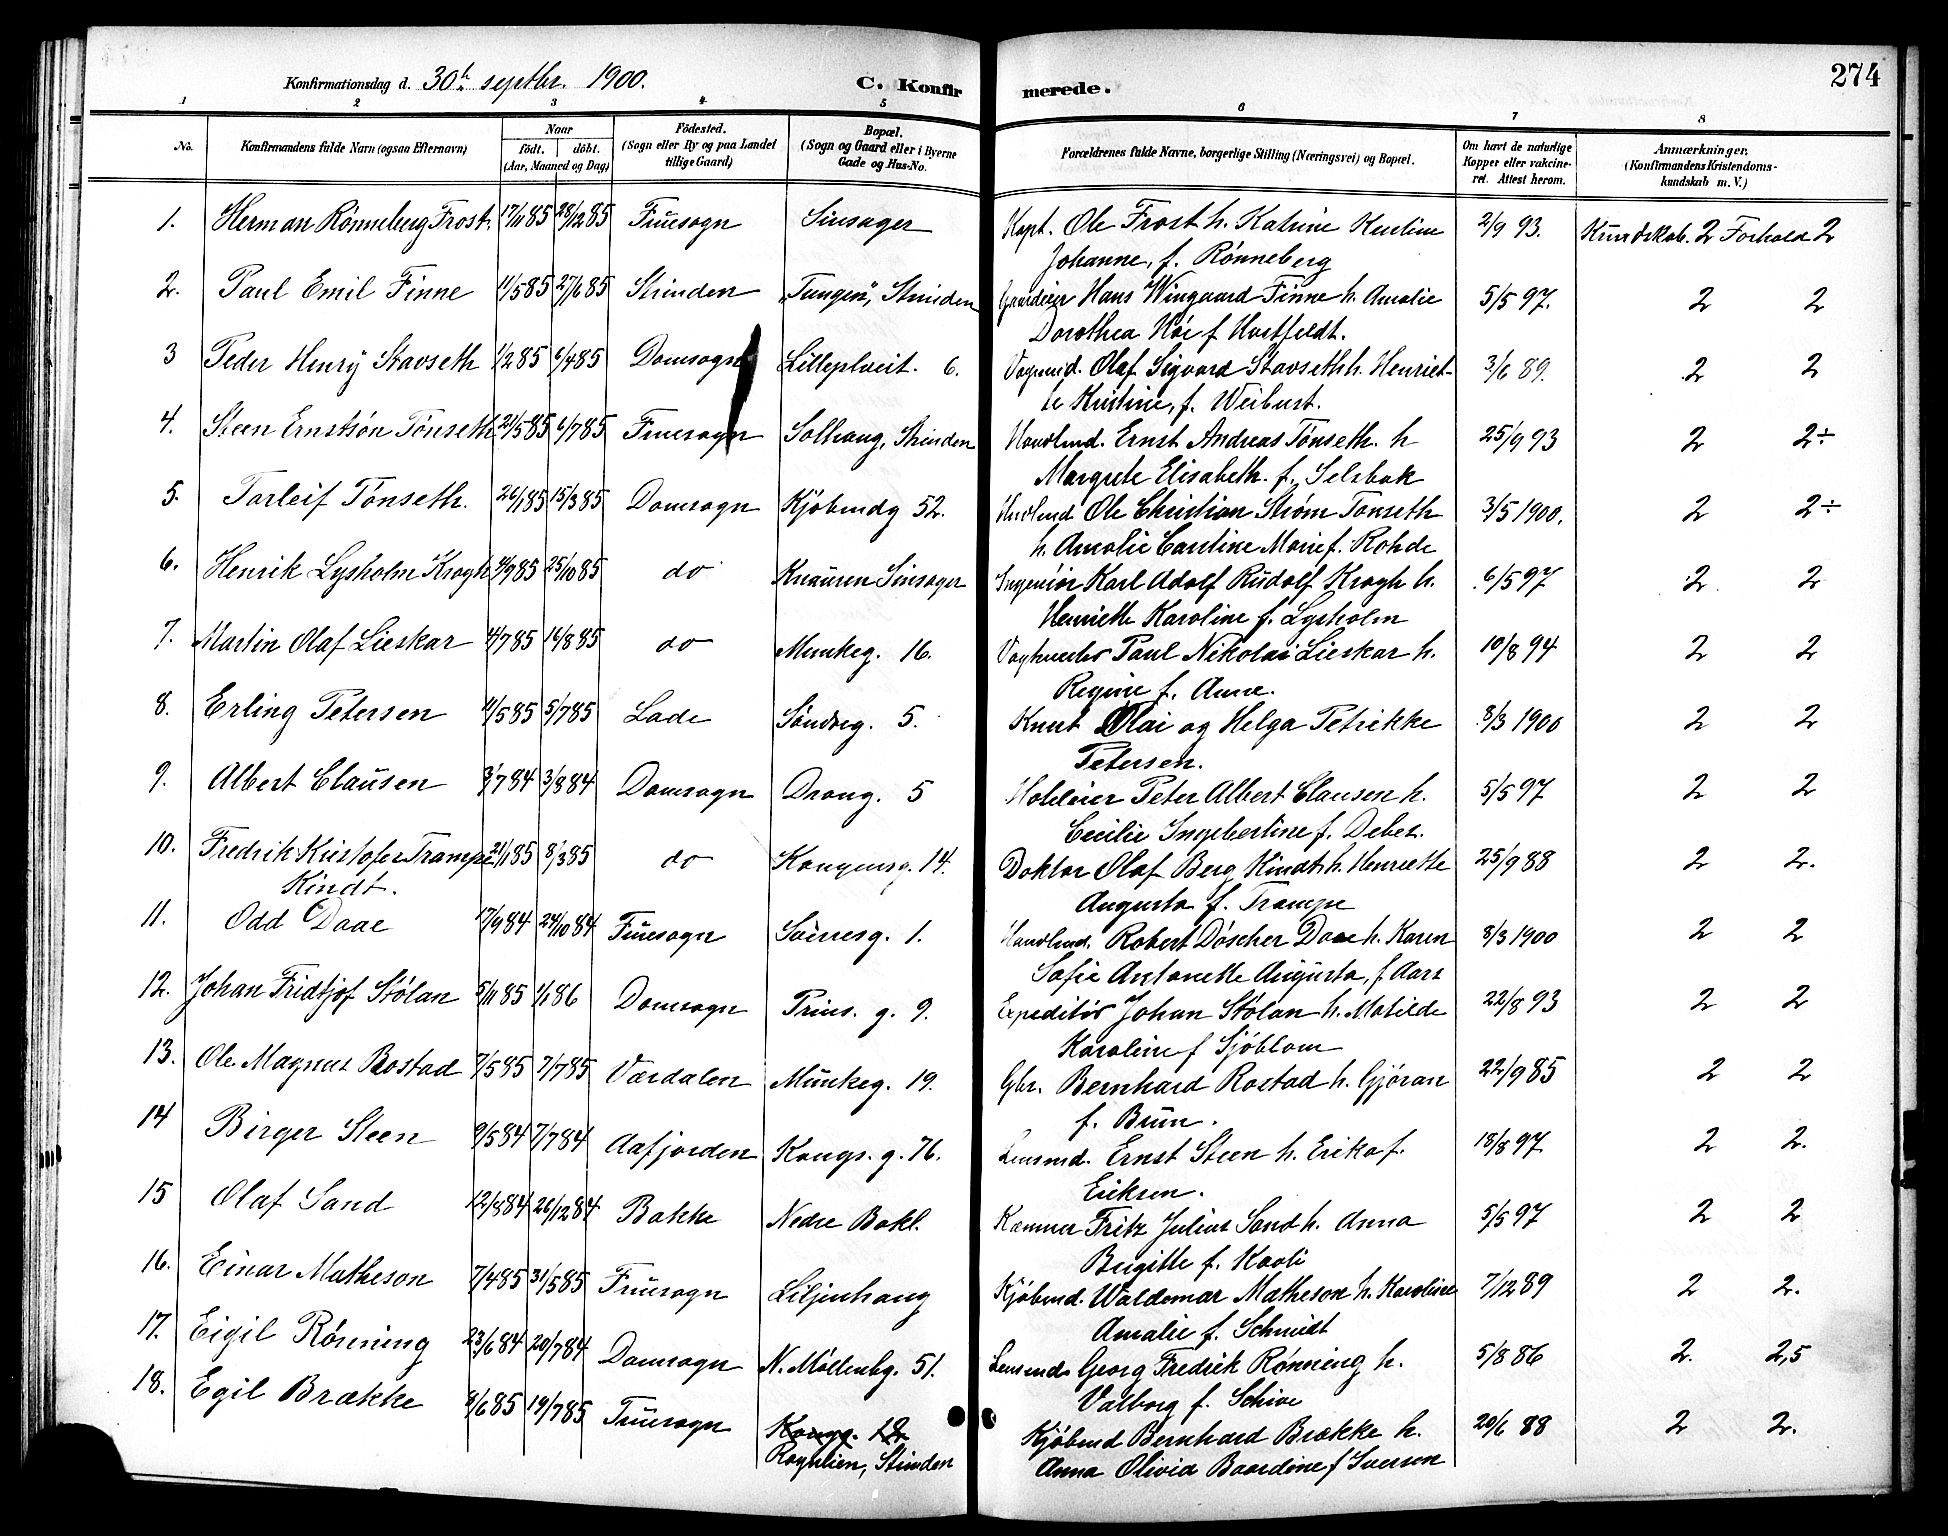 Konfirmationsdag d. 30h septbr. 1900. C. Konfirmerede. 274
1 2 3 4 5 6 7 8
No. Konfirmandens fulde Navn (ogsaa Efternavn) Naar født. døbt. (Aar, Maaned og Dag) Fødested. (Sogn eller By og paa Landet tillige Gaard) Bopæl. (Sogn og Gaard eller i Byerne Gade og Hus-No. Forældrenes fulde Navne, borgerlige Stilling (Næringsvei) og Bopæl. Om havt de naturlige Kopper eller vakcineret. Attest herom. Anmærkninger. (Konfirmandens Kristendomskundskab m. V.)
1. Herman Rønneberg Frost. 17/11 85 28/12 85 Fruesogn Sinsager Kapt. Ole Frost h. Katrine Kerline 2/9 93. Kundskab. 2 Forhold 2
Johanne, f. Rønneberg
2. Paul Emil Finne 11/5 85 27/6 85 Strinden "Tungen", Strinden Gaardeier Hans Wingaard Finne h. Amalie 5/5 97. 2 2
Dorothea Høe f Hartfeldt.
3 Peder Henry Stavseth 1/2 85 6/4 85 Domsogn Lilleplveit. 6. Vognmd. Olaf Sigvard Stavseth h. Henriet- 3/6 89. 2 2
te Kristine, f. Weibust.
4. Steen Ernstsøn Tønseth 24/5 85 6/7 85 Fruesogn Solhaug, Strinden Handlmd. Ernst Andreas Tønseth. h 25/9 93 2 2÷
Margrete Elisabeth. f. Selsbak
5. Torleif Tønseth. 26/1 85 15/3 85 Domsogn Kjøbmdg 52. Handlmd Ole Christian Strøm Tønseth 3/5 1900. 2 2÷
h. Amalie Caroline Marie f. Rohde
6. Henrik Lysholm Krogh 4/9 85 25/10 85 do Knausen Sinsager Ingeniør Karl Adolf Rudolf Krogh h. 6/5 97 2 2
Henriette Karoline f. Lysholm
7. Martin Olaf Lieskar 4/7 85 16/8 85 do Munkeg. 16. Paul Nikolai Lieskar h. 10/8 94 2 2
Regine f. Anne.
8. Erling Petersen 11/5 85 5/7 85 Lade Søndreg. 5. Knut Olai og Helga Petrikke 8/3 1900 2 2
Petersen.
9. Albert Clausen 3/7 84 3/8 84 Domsogn Drong. 5 Hoteleier Peter Albert Clausen h. 5/5 97 2 2
Cecilie Ingebertine f. Debes.
10. Fredrik Kristofer Trampe 21/1 85 8/3 85 do Kongensg. 14. Doktor Olaf Berg Kindt h. Henriette 25/9 88 2 2.
Kindt. Augusta f. Trampe
11. Odd Daae 17/9 84 24/10 84 Fruesogn Sverresg. 1. Handlmd. Robert Døscher Daae h. Karen 8/3 1900 2 2
Sofie Antonette Augusta, f Aars
12. Johan Fridtjof Stølan 5/11 85 1/1 86 Domsogn Prins. g. 9. Expeditør Johan Stølan h. Matilde 22/8 93 2 2
Karoline f Sjøblom
13. Ole Magnus Rostad 7/5 85 7/7 85 Værdalen Munkeg. 19. Gbr. Bernhard Rostad h. Gjøran 22/9 85 2 2
f. Brun.
14 Birger Steen 9/5 84 7/7 84 Aafjorden Kongs. g. 76. Lensmd. Ernst Steen h. Erika f. 18/8 97 2 2.
Eriksen.
15 Olaf Sand 12/8 84 26/12 84 Bakke Nedre Bakl. Kæmner Fritz Julius Sand h. Anna 5/5 97 2 2
Brigitte f. Kaoli
16. Einar Matheson 7/4 85 31/5 85 Fruesogn Liljenhaug Kjøbmd. Waldemar Matheson h. Karoline 7/12 89 2 2.
Amalie f. Schmidt
17. Eigil Rønning 23/6 84 20/7 84 Domsogn N. Møllenbg. 51. Lensmd Georg Fredrik Rønning h. 5/8 86 2. 2,5
Valborg f. Schive
18. Egil Brække 8/6 85 19/7 85 Fruesogn Kongg. 12 Kjøbmd Bernhard Brække h. 20/6 88 2 2.
Rognlien, Strinden Anna Olivia Baardine f Iversen